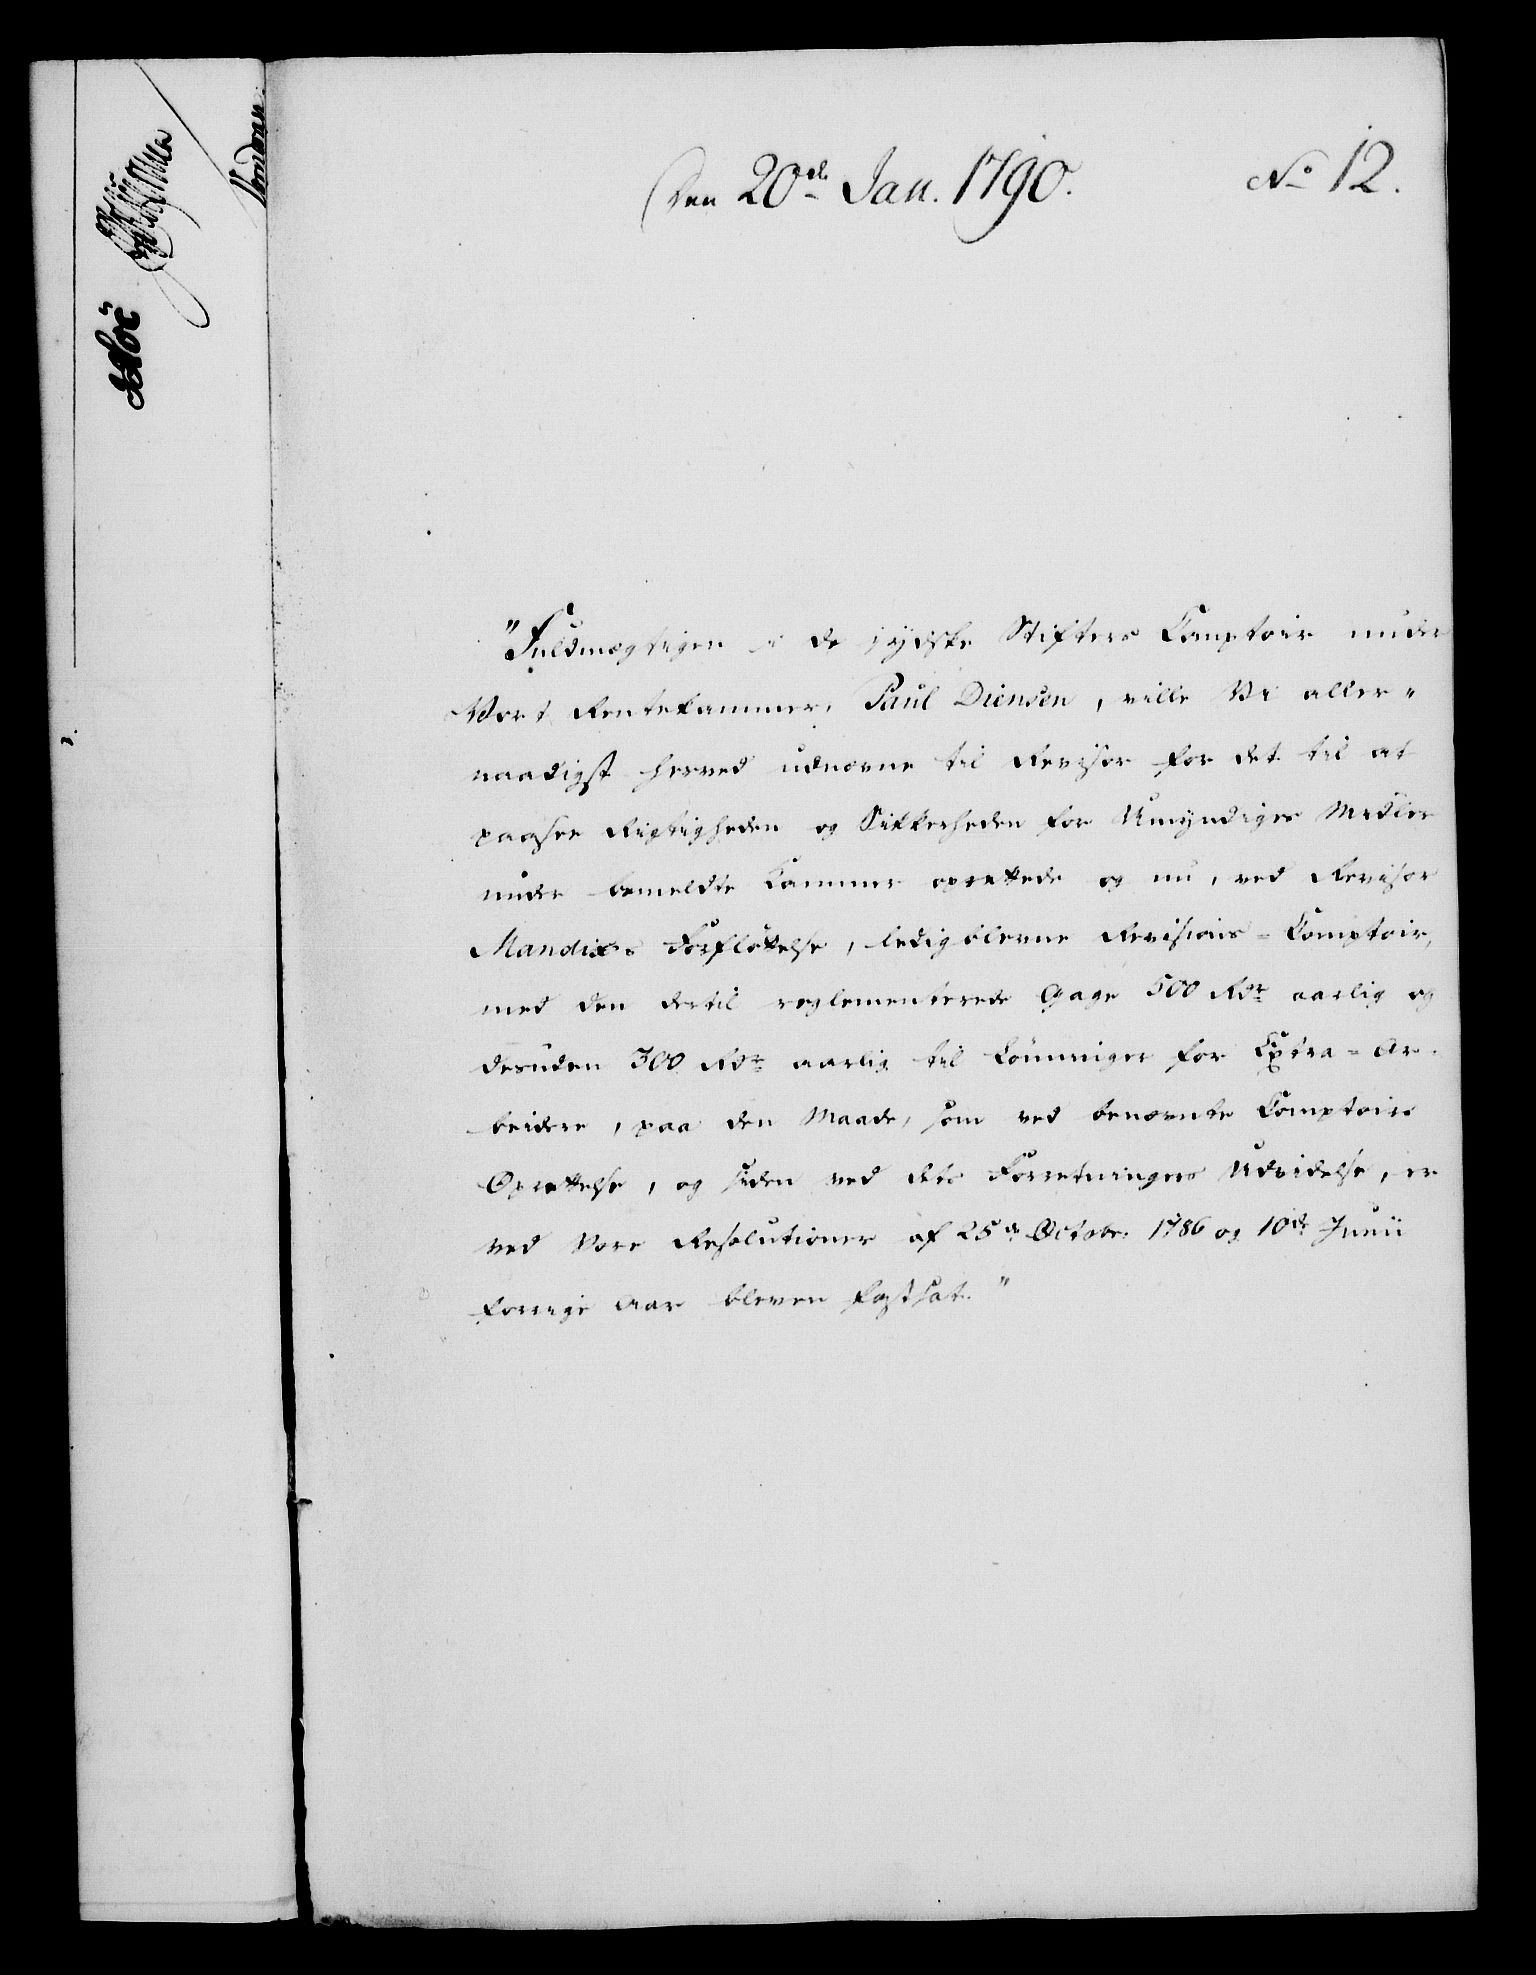 Den 20de Jan. 1790.
No 12.
"Fuldmægtigen i de jydske Stifters Comptoir under
Vort Rentekammer, Paul Diensen, ville Vi aller-
naadigst herved udnævne til Revisor for det til at
paasee Rigtigheden og Sikkerheden for Umyndiges Midler
under bemeldte Kammer oprettede og nu, ved Revisor
Mandixs Forflöttelse, ledigblevne Revisions-Comptoir,
med den dertil reglementerede Gage 500 Rdr aarlig og
desuden 300 Rdr aarlig til Lönninger for Extra-Ar-
beidere, paa den Maade, som ved benævnte Comptoirs
Oprettelse, og siden ved dets Forretningers Udvidelse, er
ved Vore Resolutioner af 25de October 1786 og 10de Junii
forrige Aar bleven fastsat."